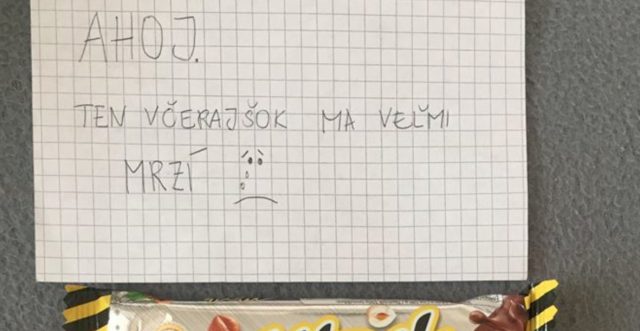 AHOJ.
TEN VČERAJŠOK MA VEĽMI
MRZÍ